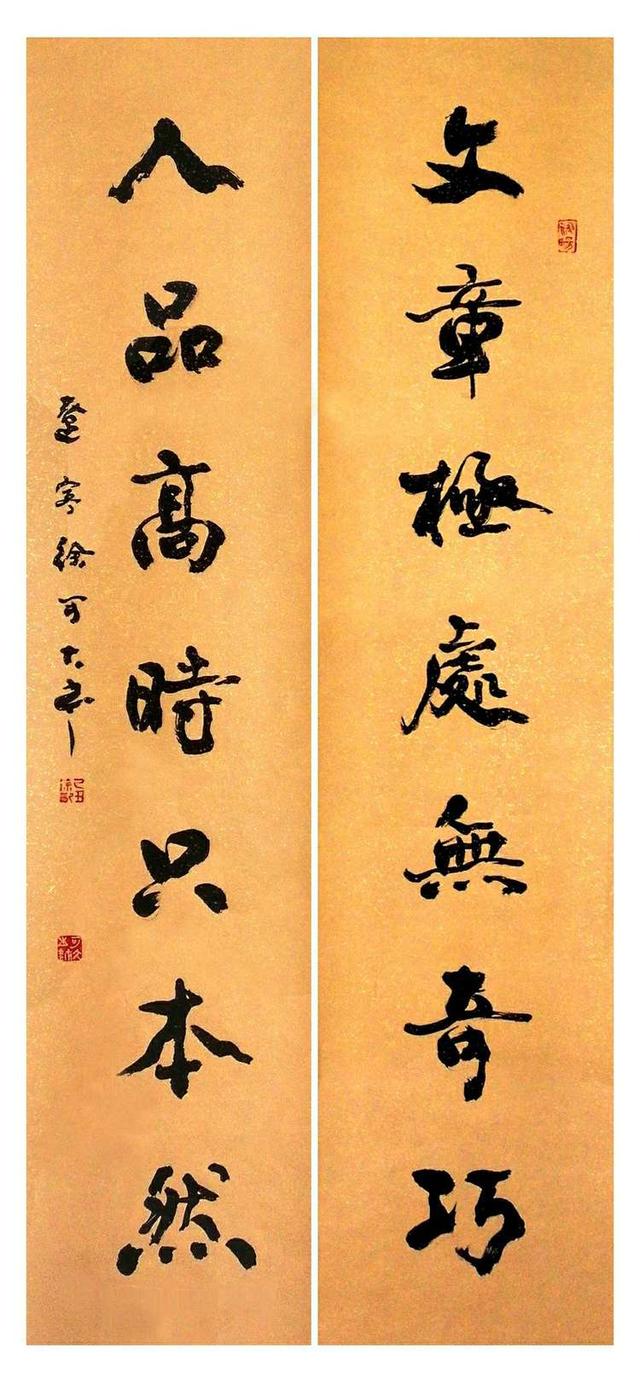 文章極處無奇巧
人品高時只本然
寄徐可大書